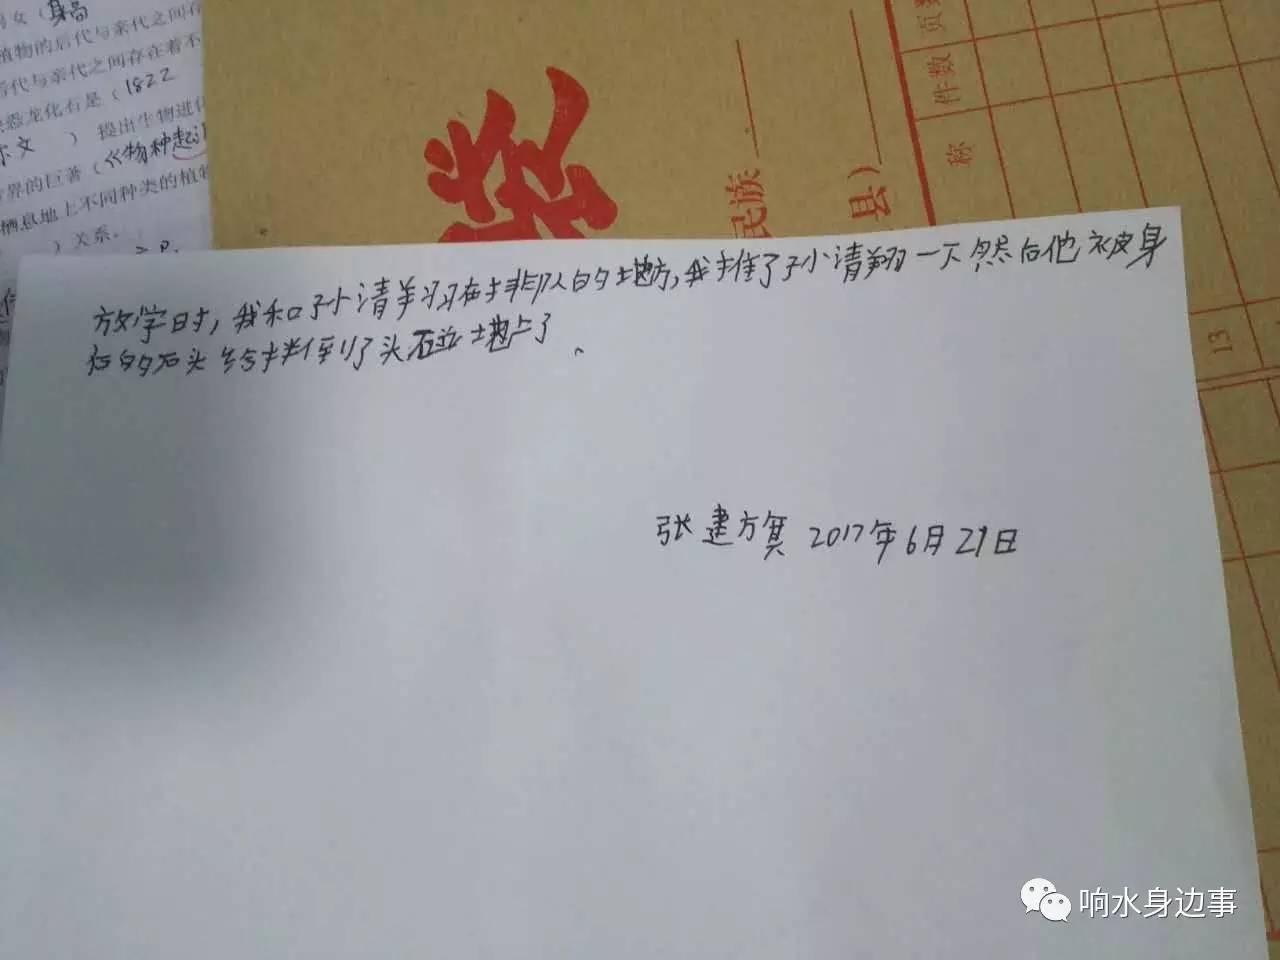 女（身高
植物的后代与亲代之间存
后代与亲代之间存在着不
恐龙化石是（1822
尔文　　）提出生物进化
界的巨著（《物种起源
栖息地上不同种类的植物
）关系。
袋
民族
县）
称
件数
页数
13
放学时，我和孙清翔在排队的地方，我推了孙清翔一下然后他被身
后的石头给拌倒了头碰地上了、
张建旗 2017年6月29日
响水身边事